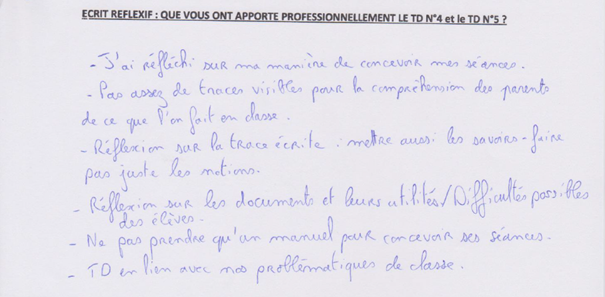 ECRIT REFLEXIF : QUE VOUS ONT APPORTE PROFESSIONNELLEMENT LE TD N°4 et le TD N°5 ?
- J'ai réfléchi sur ma manière de concevoir mes séances.
- Pas assez de traces visibles pour la compréhension des parents
de ce que l'on fait en classe.
- Réflexion sur la trace écrite : mettre aussi les savoirs-faire
pas juste les notions.
- Réflexion sur les documents et leurs utilités / Difficultés possibles
des élèves.
- Ne pas prendre qu'un manuel pour concevoir ses séances.
- TD en lien avec nos problématiques de classe.